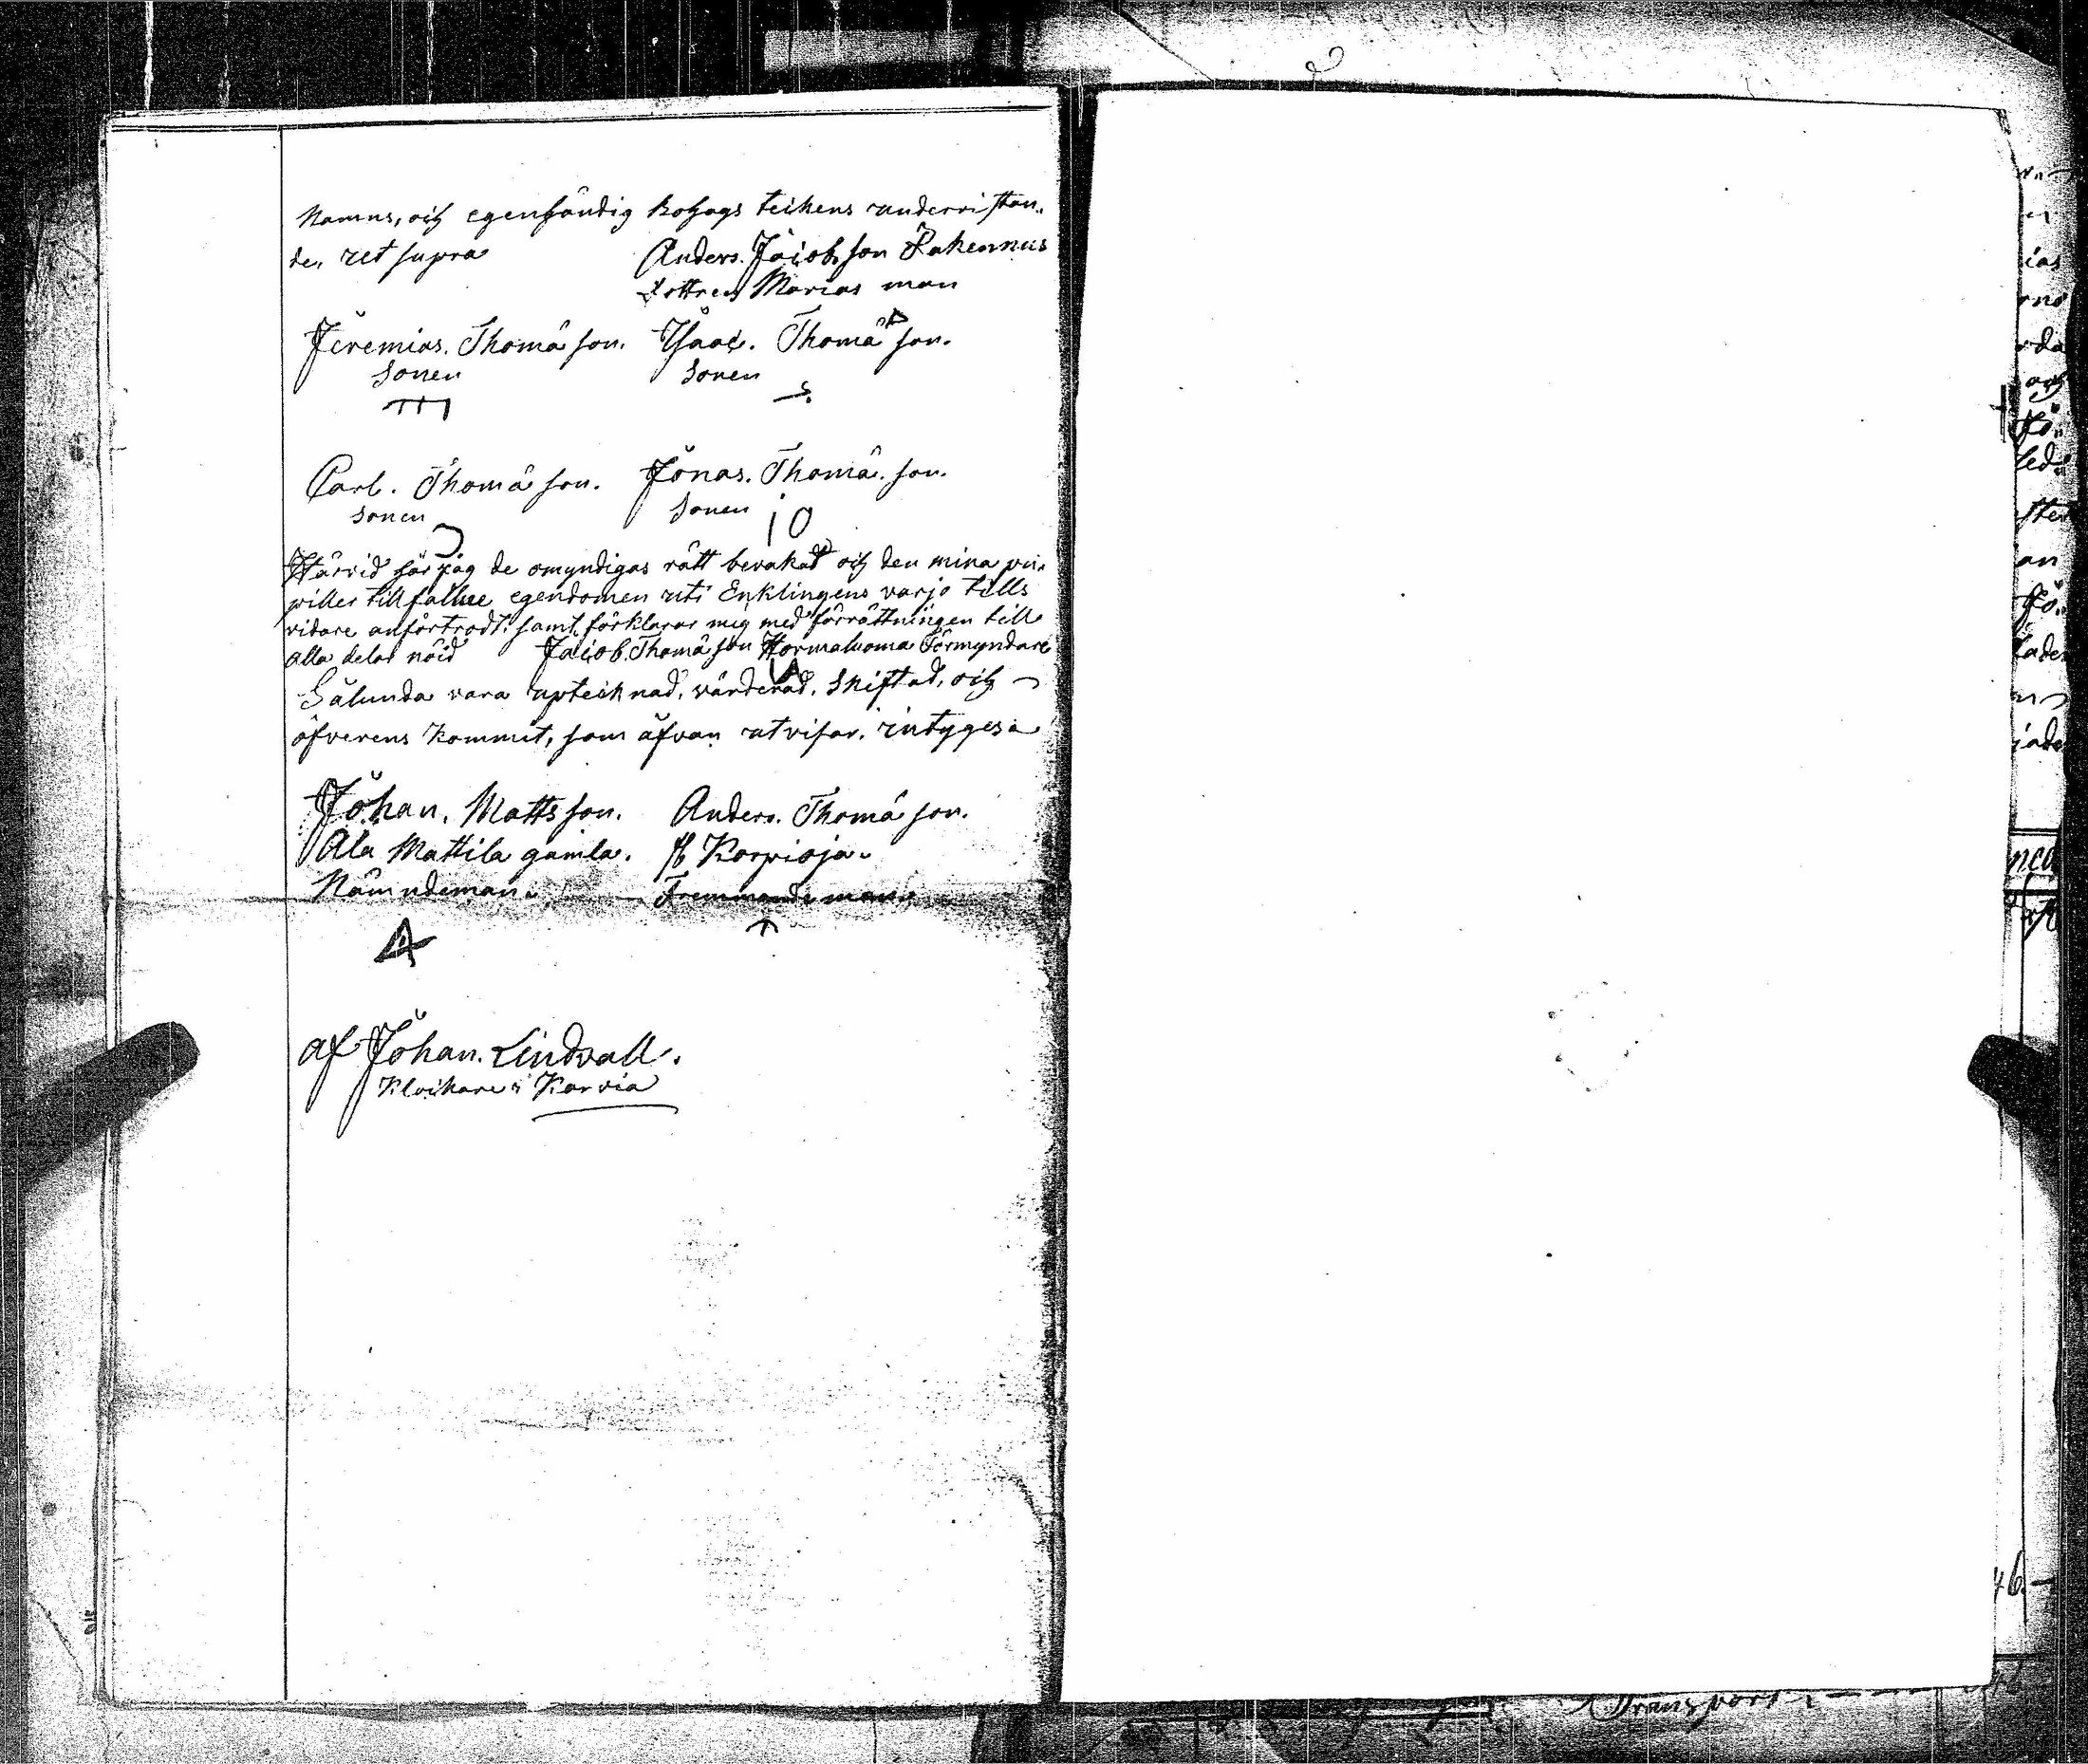 Namns, och egenhändig bohags teikens underristan„
de, ut supra Anders. Jacobsson Rakennus
dottren Marias man
Jeremias. Thomä son. Ysaac. Thomä son.
Sonen Sonen
Carl. Thomä son. Jonas. Thomä. son.
Sonen Sonen
Härvid har jag de omyndigas rätt bevakad och den mina pu„
piller tillfallne egendomen uti Enklingens varjo tills
vidare anförtrodt. samt förklarar mig med förrättningen till
alla delar nöid Jacob. Thomä son Hormaluoma Förmyndare
Sålunda vara upteiknad, värderad, Skiftad, och
öfverens kommit, som åfvan utvisar. intyges:
Johan. Matts son. Anders. Thomä son.
Ala Mattila gamla. Korpioja.
Nämndeman. Fremmande man.
af Johan. Lindvall.
Klockare i Karvia
Transport